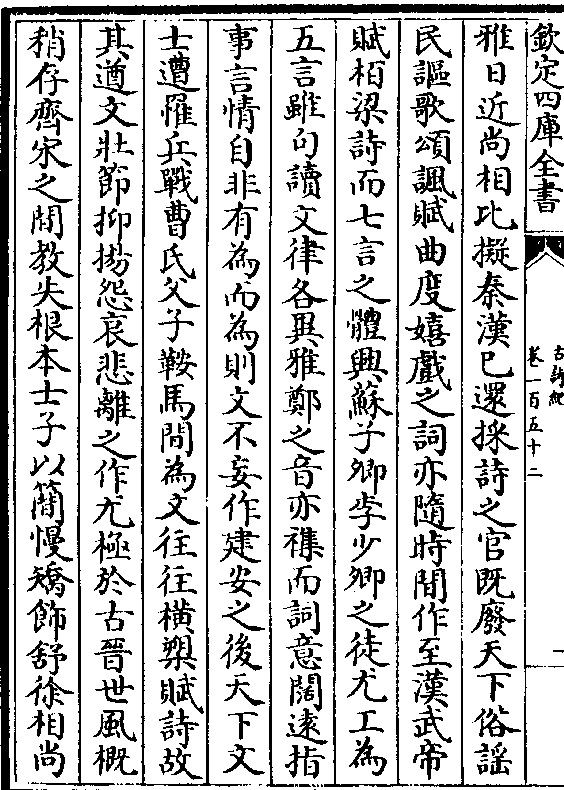 欽定四庫全書
古詩紀
卷一百五十二
一
雅日近尚相比擬秦漢已還採詩之官既廢天下俗謡
民謳歌頌諷賦曲度嬉戲之詞亦隨時間作至漢武帝
賦栢梁詩而七言之體興蘇子卿李少卿之徒尤工為
五言雖句讀文律各異雅鄭之音亦襍而詞意闊逺指
事言情自非有為而為則文不妄作建安之後天下文
士遭罹兵戰曹氏父子鞍馬間為文往往横槊賦詩故
其遒文壯節抑揚怨哀悲離之作尤極於古晉世風概
稍存齊宋之間教失根本士子以簡慢矯飾舒徐相尚